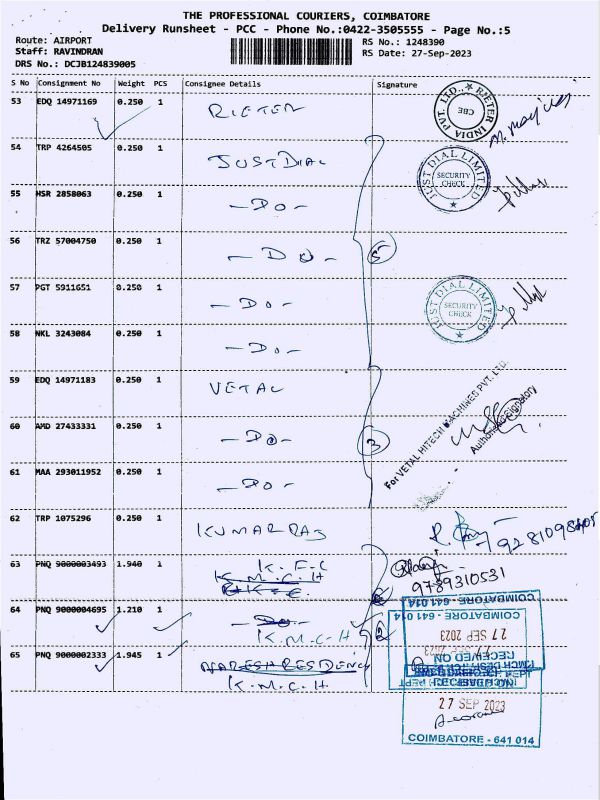 THE PROFESSIONAL COURIERS, COIMBATORE
Delivery Runsheet - PCC - Phone No.:0422-3505555 - Page No.:5
Route: AIRPORT RS No.: 1248390
Staff: RAVINDRAN RS Date: 27-Sep-2023
DRS No.: DCJB124839005
S No Consignment No Weight PCS Consignee Details Signature
53 EDQ 14971169 0.250 1 RIETER
RIETER INDIA PVT. LTD., CBE
54 TRP 4264505 0.250 1 JUSTDIAL
JUST DIAL LIMITED SECURITY CHECK
55 HSR 2858063 0.250 1 - DO -
56 TRZ 57004750 0.250 1 - DO - 5
57 PGT 5911651 0.250 1 - DO -
JUST DIAL LIMITED SECURITY CHECK
58 NKL 3243084 0.250 1 - DO -
59 EDQ 14971183 0.250 1 VETAL
For VETAL HITECH MACHINES PVT. LTD.
Authorised Signatory
60 AMD 27433331 0.250 1 - DO - 3
61 MAA 293011952 0.250 1 - DO -
62 TRP 1075296 0.250 1 KUMARRAJ
63 PNQ 9000003493 1.940 1 K.F.C
K.M.C.H
9789310531
64 PNQ 9000004695 1.210 1 - DO -
K.M.C.H 2
COIMBATORE - 641 014
COIMBATORE - 641 014
27 SEP 2023
RECEIVED ON
65 PNQ 9000002333 1.945 1 NARESH RESIDENCY
K.M.C.H
27 SEP 2023
COIMBATORE - 641 014